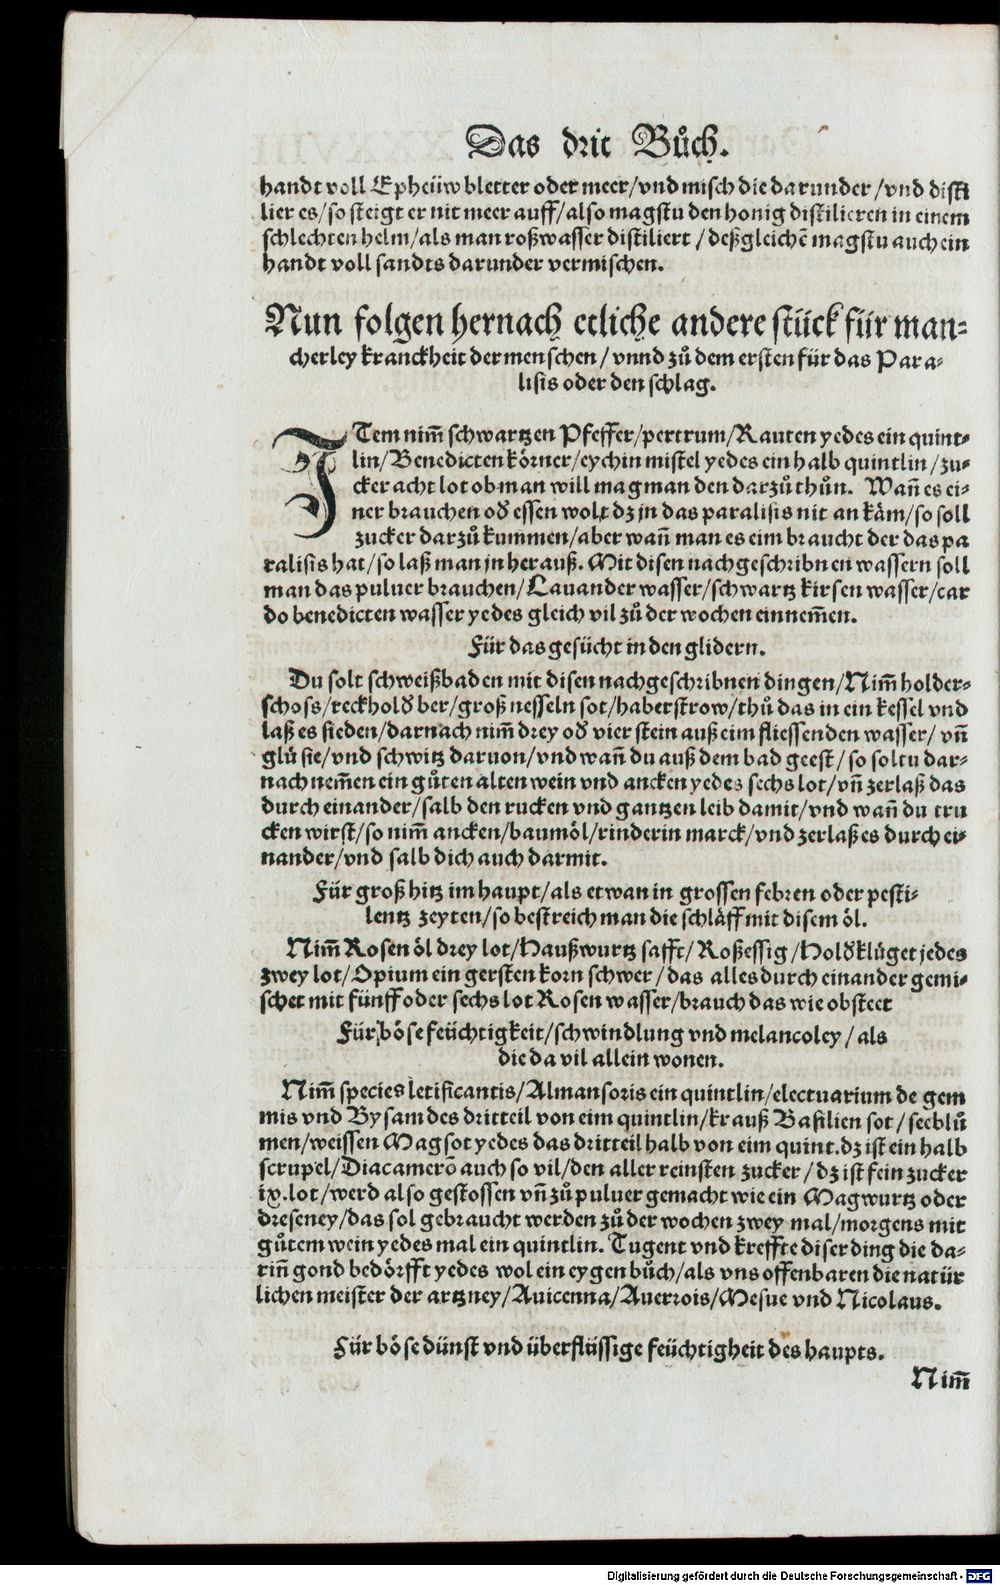 Das drit Bůch.
handt voll Epheüw bletter oder meer/vnd misch die darunder/vnd disti
lier es/so steigt er nit meer auff/also magstu den honig distilieren in einem
schlechten helm/als man roßwasser distiliert/deßgleichẽ magstu auch ein
handt voll sandts darunder vermischen.
Nun folgen hernach etliche andere stück für man-
cherley kranckheit der menschen/vnnd zů dem ersten für das Para-
lisis oder den schlag.
ITem nim̃ schwartzen Pfeffer/pertrum/Rauten yedes ein quint-
lin/Benedicten körner/eychin mistel yedes ein halb quintlin/zu-
cker acht lot ob man will mag man den darzů thůn. Wañ es ei-
ner brauchen oď essen wolt dz jn das paralisis nit an käm/so soll
zucker darzů kummen/aber wañ man es eim braucht der das pa
ralisis hat/so laß man jn herauß. Mit disen nachgeschribnen wassern soll
man das puluer brauchen/Lauander wasser/schwartz kirsen wasser/car
do benedicten wasser yedes gleich vil zů der wochen einnem̃en.
Für das gesücht in den glidern.
Du solt schweißbaden mit disen nachgeschribnen dingen/Nim̃ holder-
schoss/reckholď ber/groß nesseln sot/haberstrow/thů das in ein kessel vnd
laß es sieden/darnach nim̃ drey oď vier stein auß eim fliessenden wasser/vñ
glü sie/vnd schwitz daruon/vnd wañ du auß dem bad geest/so soltu dar-
nach nem̃en ein gůten alten wein vnd ancken yedes sechs lot/vñ zerlaß das
durch einander/salb den rucken vnd gantzen leib damit/vnd wañ du tru
cken wirst/so nim̃ ancken/baumöl/rinderin marck/vnd zerlaß es durch ei-
nander/vnd salb dich auch darmit.
Für groß hitz im haupt/als etwan in grossen febren oder pesti-
lentz zeyten/so bestreich man die schläff mit disem öl.
Nim̃ Rosen öl drey lot/Haußwurtz safft/Roßessig/Holďklüget jedes
zwey lot/Opium ein gersten korn schwer/das alles durch einander gemi-
schet mit fünff oder sechs lot Rosen wasser/brauch das wie obsteet
Für böse feüchtigkeit/schwindlung vnd melancoley/als
die da vil allein wonen.
Nim̃ species letificantis/Almansoris ein quintlin/electuarium de gem
mis vnd Bysam des dritteil von eim quintlin/krauß Basilien sot/seeblů
men/weissen Magsot yedes das dritteil halb von eim quint. dz ist ein halb
scrupel/Diacamerõ auch so vil/den aller reinsten zucker/dz ist fein zucker
ix. lot/werd also gestossen vñ zů puluer gemacht wie ein Magwurtz oder
dreseney/das sol gebraucht werden zů der wochen zwey mal/morgens mit
gůtem wein yedes mal ein quintlin. Tugent vnd kreffte diser ding die da-
riñ gond bedörfft yedes wol ein eygen bůch/als vns offenbaren die natür
lichen meister der artzney/Auicenna/Auerrois/Mesue vnd Nicolaus.
Für böse dünst vnd überflüssige feüchtigheit des haupts.
Nim̃
Digitalisierung gefördert durch die Deutsche Forschungsgemeinschaft - DFG